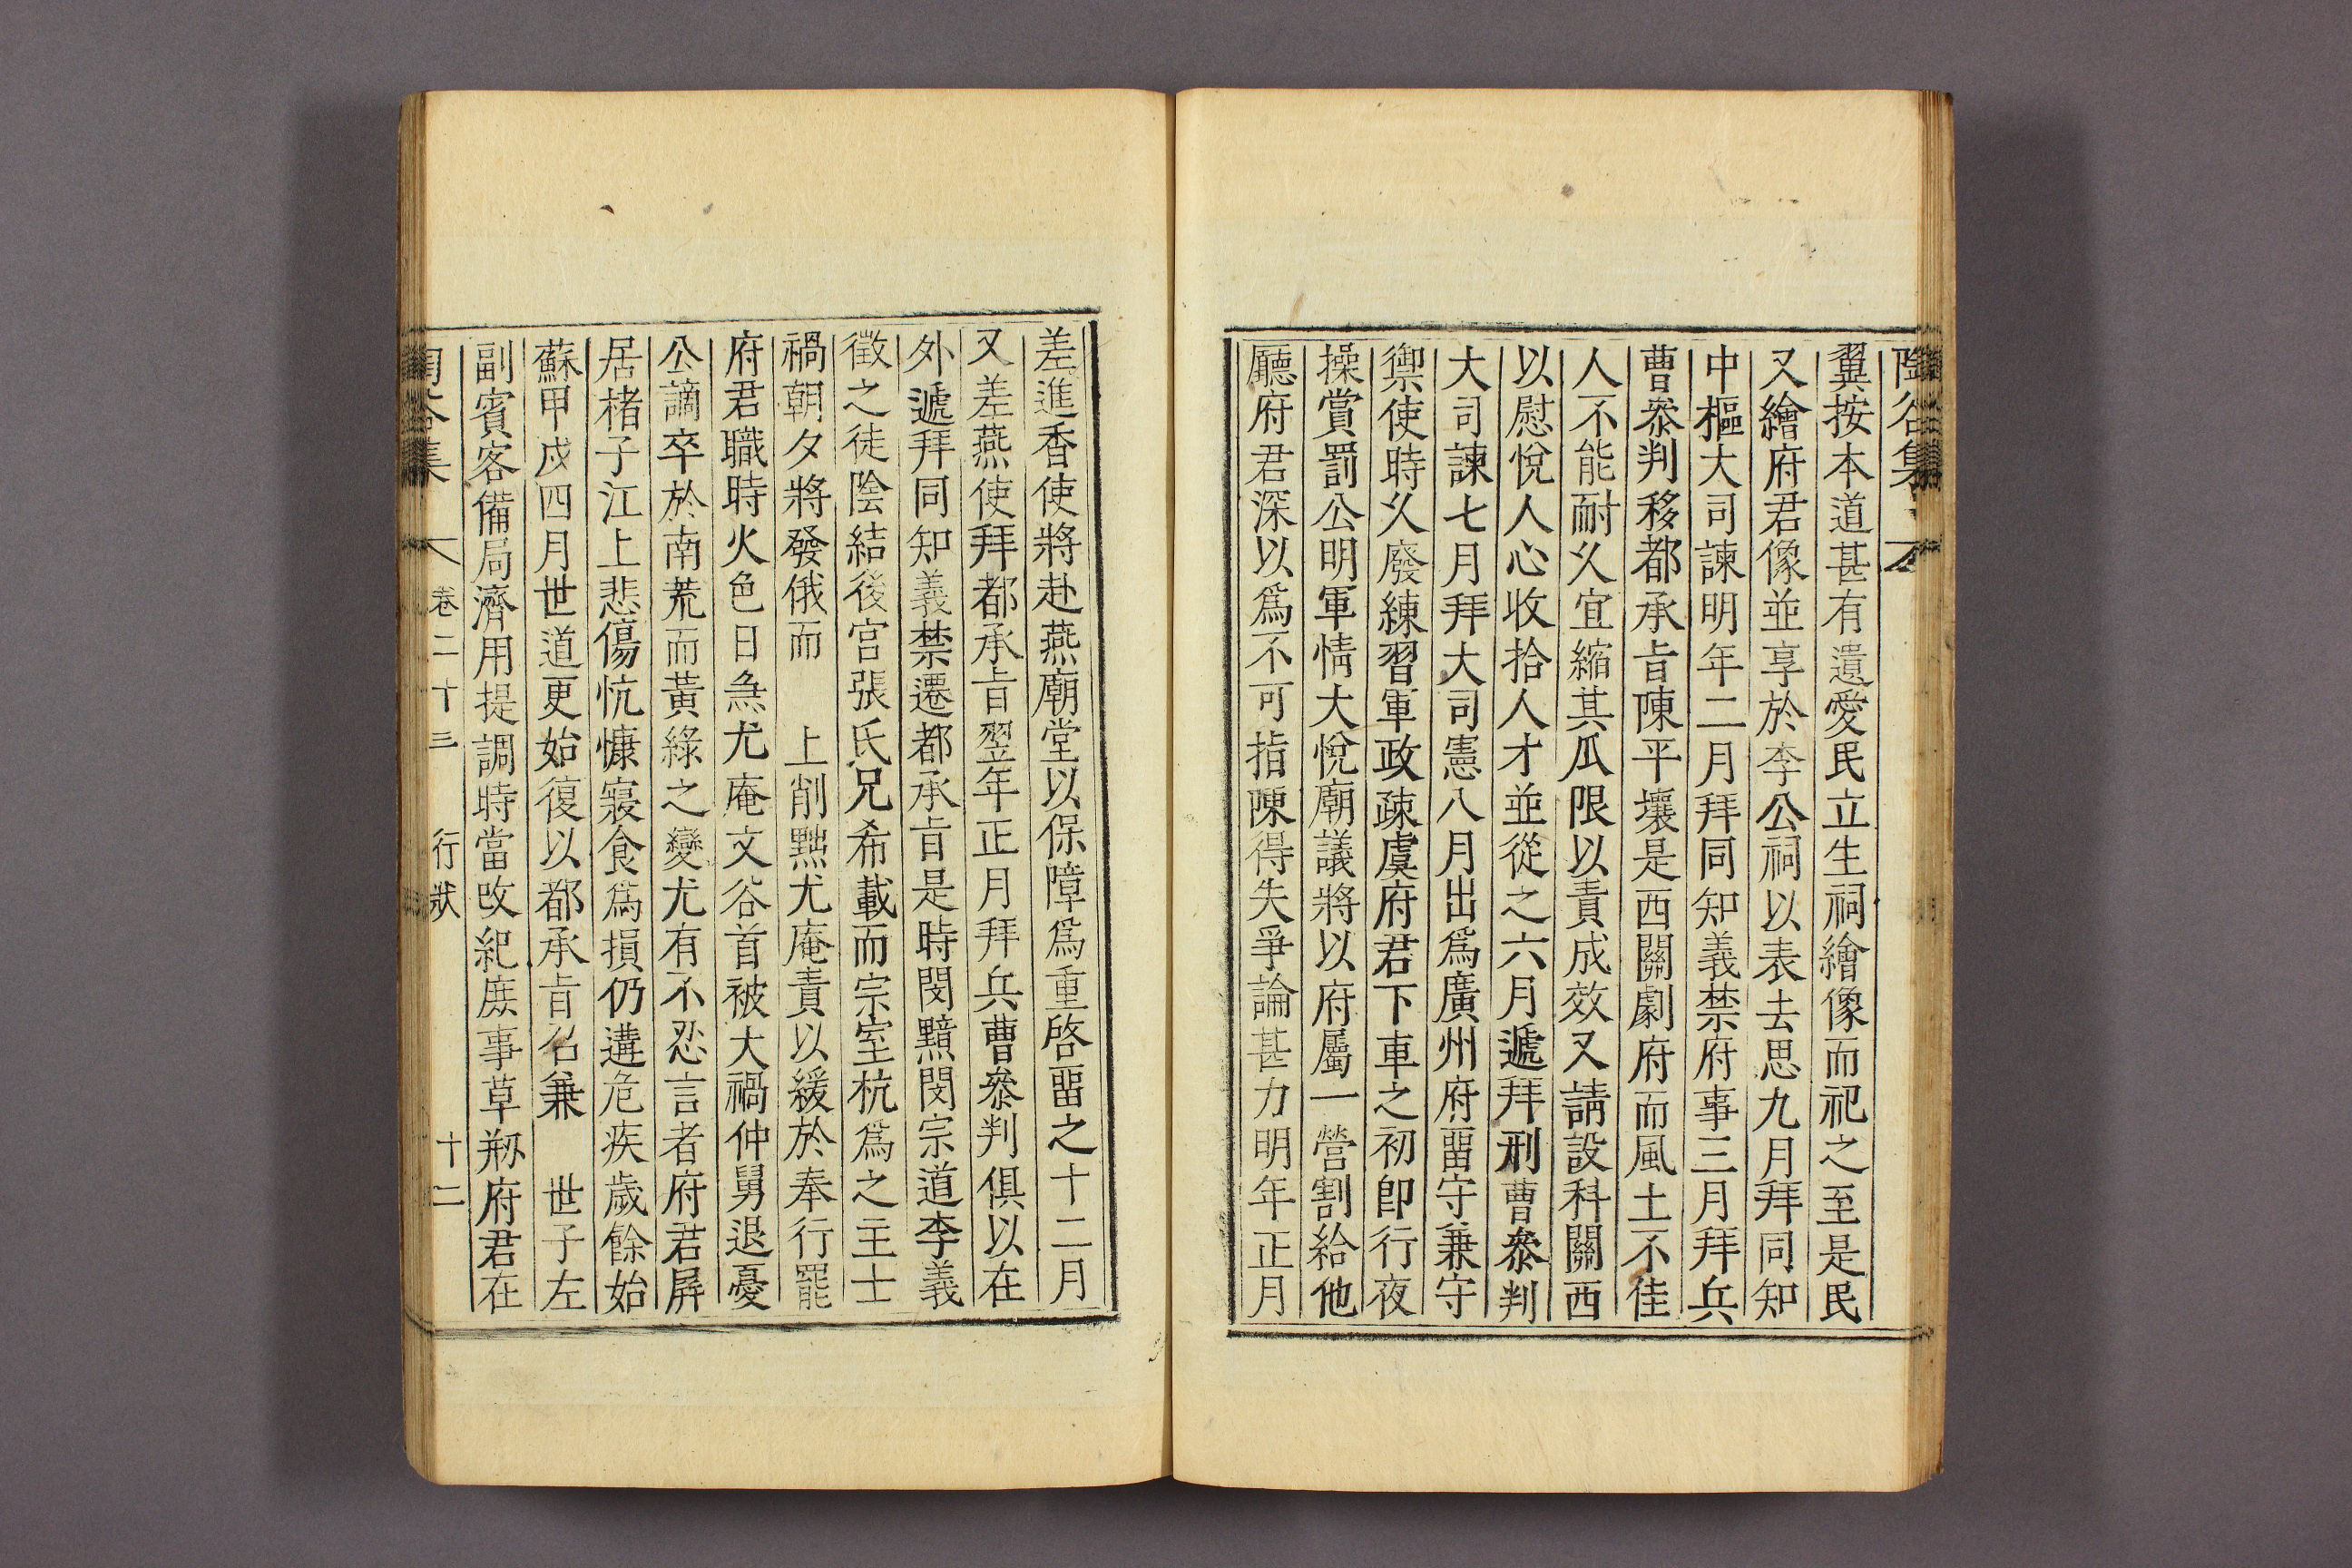 陶谷集
翼按本道甚有遺愛民立生祠繪像而祀之至是民
又繪府君像並享於李公祠以表去思九月拜同知
中樞大司諫明年二月拜同知義禁府事三月拜兵
曹叅判移都承旨陳平壤是西關劇府而風土不佳
人不能耐久宜縮其瓜限以責成效又請設科關西
以慰悅人心收拾人才並從之六月遞拜刑曹叅判
大司諫七月拜大司憲八月出爲廣州府畱守兼守
禦使時久廢練習軍政疎虞府君下車之初卽行夜
操賞罰公明軍情大悅廟議將以府屬一營割給他
廳府君深以爲不可指陳得失爭論甚力明年正月
差進香使將赴燕廟堂以保障爲重啓畱之十二月
又差燕使拜都承旨翌年正月拜兵曹叅判俱以在
外遞拜同知義禁遷都承旨是時閔黯閔宗道李義
徵之徒陰結後宮張氏兄希載而宗室杭爲之主士
禍朝夕將發俄而　上削黜尤庵責以緩於奉行罷
府君職時火色日煞尤庵文谷首被大禍仲舅退憂
公謫卒於南荒而黃綠之變尤有不忍言者府君屛
居楮子江上悲傷忼慷寢食爲損仍遘危疾歲餘始
蘇甲戌四月世道更始復以都承旨召兼　世子左
副賓客備局濟用提調時當改紀庶事草刱府君在
陶谷集　卷二十三　行狀　十二